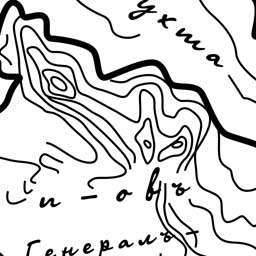 ухта
п-овъ
Генералъ-